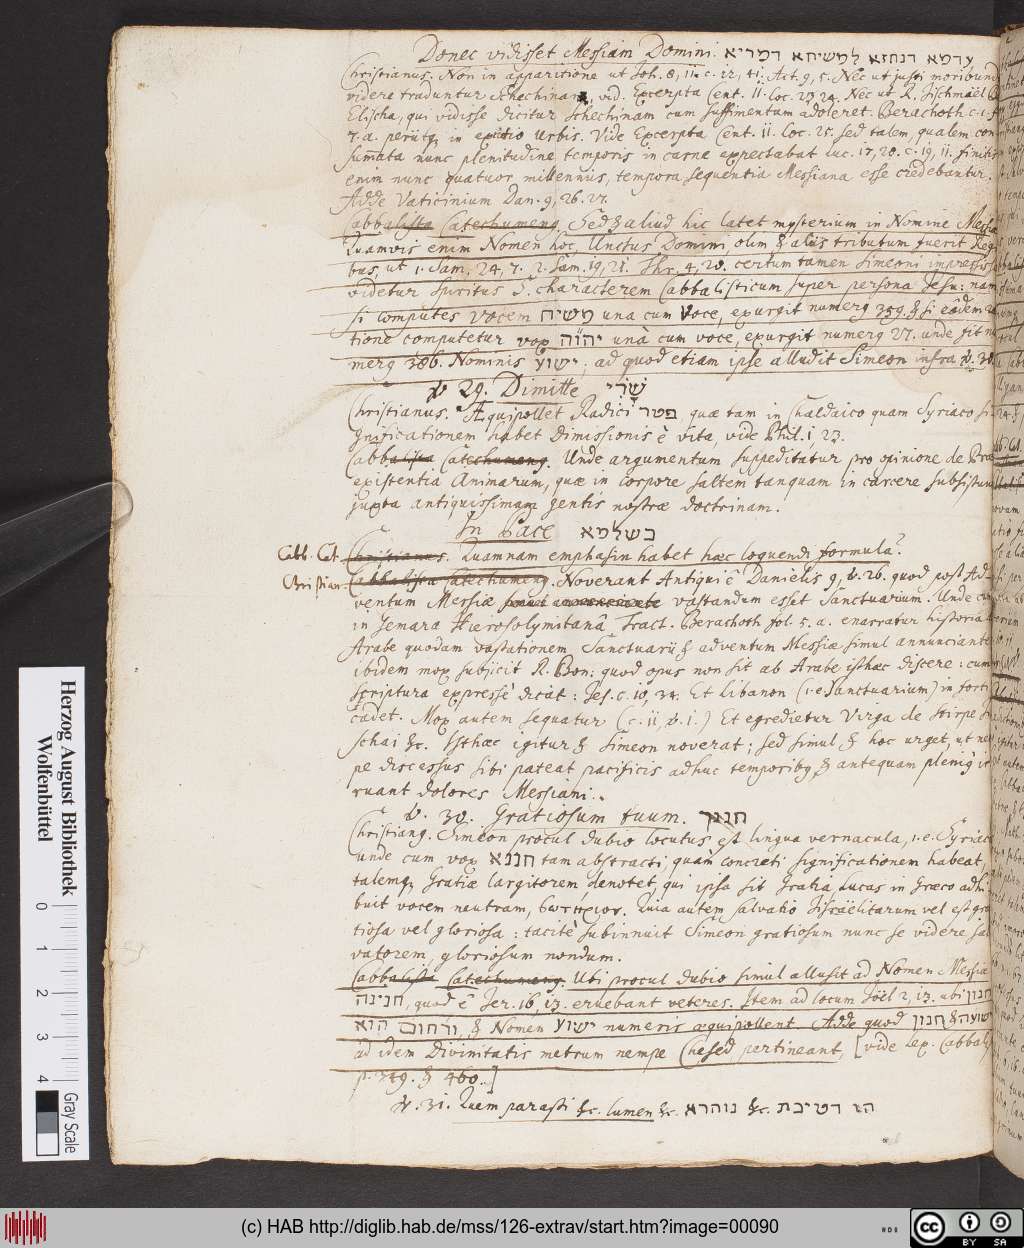 Donec vidisset Messiam Domini. עדמא דנחזא למשיחא דמריא
Christianus. Non in apparitione ut Joh. 8, 11. c. 12, 41. Act. 9, 5. Nec ut justi moribund
videre traduntur Schechinam, vid. Excerpta Cent. II. Loc. 23. 24. Nec ut R. Jischmaël
Elischa, qui vidisse dicitur Schechinam cum suffimentum adoleret. Berachoth c. 1. f.
7. a. in excitio Urbis. Vide Excerpta Cent. II. Loc. 25. sed talem, qualem con
summata nunc plenitudine temporis in carne expectabat Luc. 17, 20. c. 19, 11. finitis
enim nunc quatuor millennijs, tempora sequentia Messiana esse credebantur.
Adde Vaticinium Dan. 9, 26. 27.
Cabbalista Catechumenq. Sed & aliud hic latet mysterium in Nomine Messiæ
Quamvis enim Nomen hoc, Unctus Domini olim & aliis tributum fuerit Reg
bus, ut 1. Sam. 24, 7. 2. Sam. 19, 21. Thr. 4, 20. certum tamen Simeoni impressis
videtur Spiritus S. characterem Cabbalisticum super persona Jesu: nam
si computes vocem משיח una cum voce, exurgit numerq 359. & si eâdem ra
tione computetur vox יהוה unà cum voce, exurgit numerq 27. unde fit nu
merq 386. Nominis ישוע: ad quod etiam ipse alludit Simeon infra v. 30.
v 29. Dimitte שׁרי
Christianus. Æquipollet Radici פטר quæ tam in Chaldaico quam Syriaco si
gnificationem habet dimissionis è vita, vide Phil. 1, 23.
Cabbalista Catechumenq. Unde argumentum suppeditatur pro opinione de Præ
existentia Animarum, quæ in corpore saltem tanquam in carcere subsistunt
juxta antiquissimam gentis nostræ doctrinam.
In Pace בשלמא
Cabb. Cat. Christianus. Quamnam emphasin habet hæc loquendi formula?
Christian. Cabbalista Catechumenq. Noverant Antiqui è Danielis 9, v. 26. quod post Ad-
ventum Messiæ vastandum esset Sanctuarium. Unde cum
in Gemara Hierosolymitanâ Tract. Berachoth fol. 5. a. enarratur historia
Arabe quodam vastationem Sanctuarii & adventum Messiæ simul annunciante
ibidem mox subjicit R. Bon: quod opus non sit ab Arabe isthæc discere: cum
scriptura expressè dicat: Jes. c. 10, 34. Et Libanon (i.e Sanctuarium) in forti
cadet. Mox autem sequatur (c. 11, v. 1.) Et egredietur Virga de stirpe
schai &c. Isthæc igitur & Simeon noverat; sed simul & hoc urget, ut nem
pe discessus sibi pateat pacificis adhuc temporibq & antequam plenq ir
ruant dolores Messiani.
v. 30. Gratiosum tuum. חנונך
Christianq. Simeon procul dubio locutus est lingua vernacula, i.e. Syriac
unde cum vox חננא tam abstracti, quam concreti significationem habeat,
talemq Gratiæ largitorem denotet, qui ipsa sit Gratia, Lucas in Græco adhi
buit vocem neutram, σωτηριον. Quia autem salvatio Jisraëlitarum vel est gra
tiosa vel gloriosa: tacitè subinnuit Simeon gratiosum nunc se videre sal
vatorem, gloriosum nondum.
Cabbalista Catechumenq. Ubi procul dubio simul allusit ad Nomen Messiæ
חנינה, quod è Jer. 16, 13. eruebant veteres. Item ad locum Joël 2, 13. ubi חנון
ורחום הוא, & Nomen ישוע numeris æquipollent. Adde quod חנון & ישועה
ad idem Divinitatis metrum nempe Chesed pertineant, [vide Lex. Cabbal.
p. 349. & 460.]
v. 31. Quem parasti &c. lumen &c. הו דטיבת &c. נוהרא
Herzog August Bibliothek
Wolfenbüttel
0 1 2 3 4
Gray Scale
(c) HAB http://diglib.hab.de/mss/126-extrav/start.htm?image=00090
cc BY SA